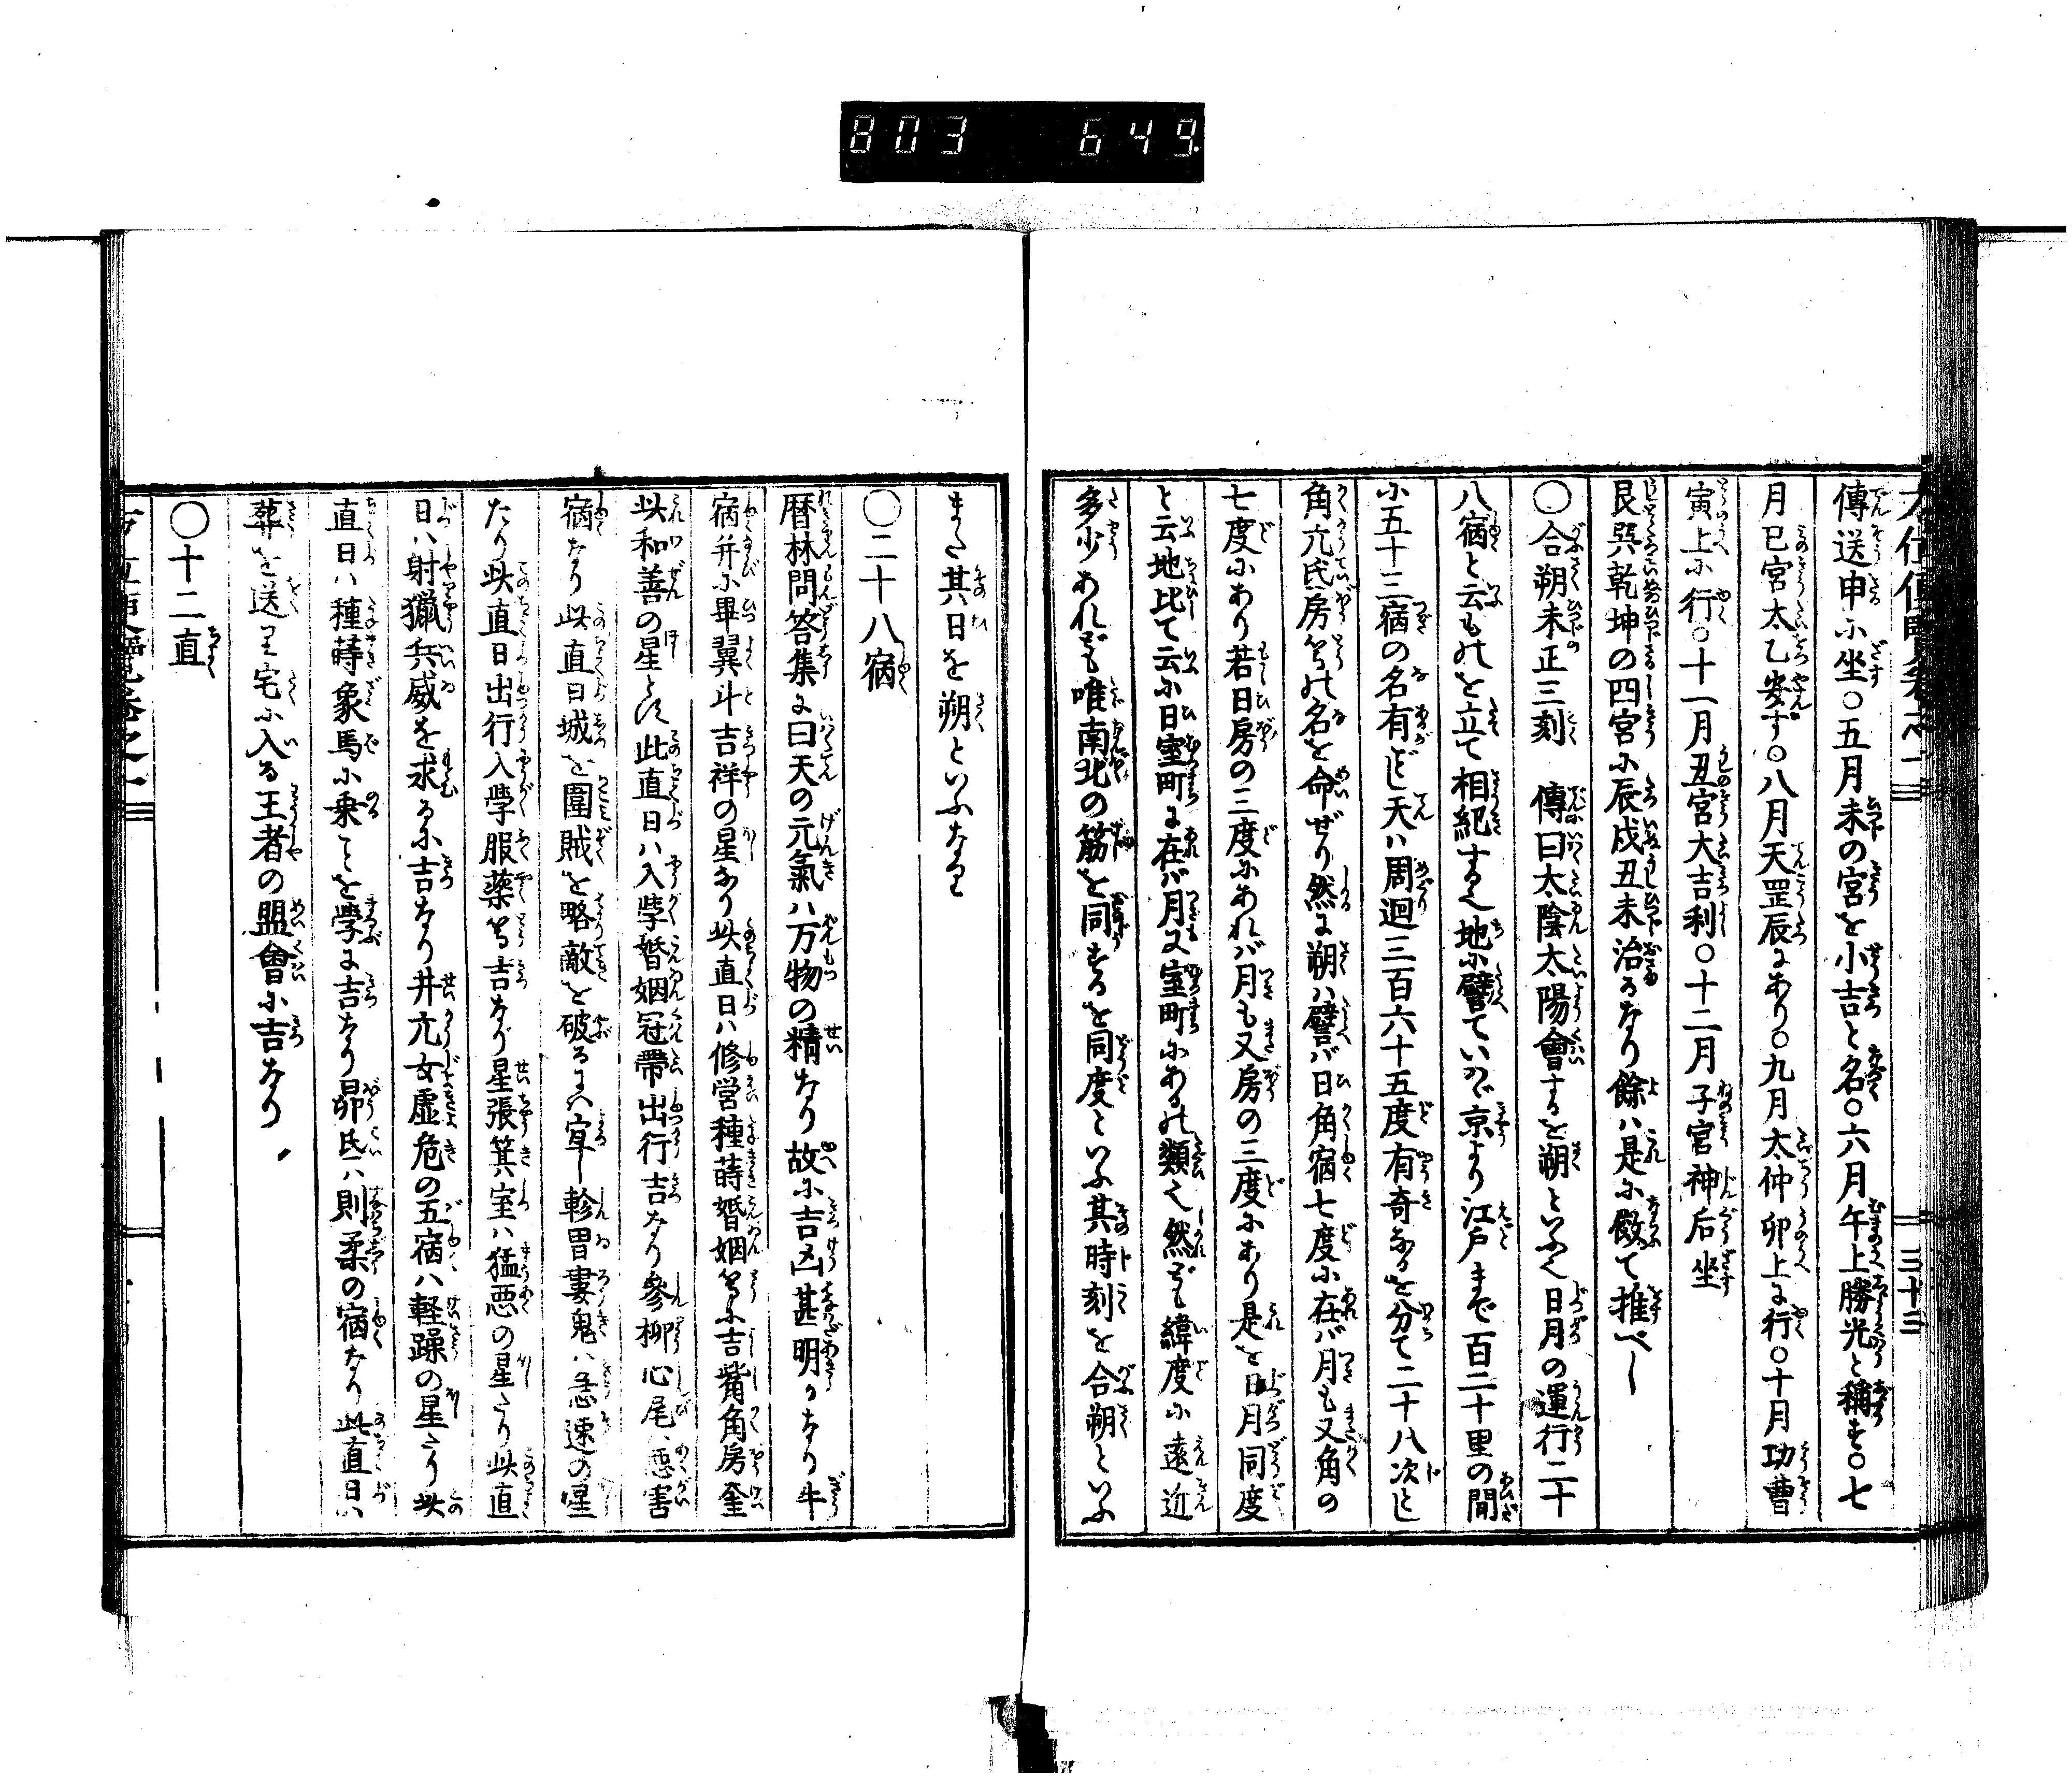 803 649
三十三
傳送申に坐〇五月未の宮を小吉と名〇六月午上勝光と稱す〇七
月巳宮太乙安す〇八月天罡辰にあり〇九月太仲卯上に行〇十月功曹
寅上に行〇十一月丑宮大吉利〇十二月子宮神后坐
艮巽乾坤の四宮に辰戌丑未治るなり餘ハ是に傚て推べし
〇合朔未正三刻 傳曰太陰太陽會するを朔といふ日月の運行二十
八宿と云ものを立て相紀する也地に譬ていハヾ京より江戸まで百二十里の間
に五十三宿の名有ごとし天ハ周廻三百六十五度有奇なるを分て二十八次とし
角亢氐房等の名を命ぜり然に朔ハ譬バ日角宿七度に在バ月も又角の
七度にあり若日房の三度にあれバ月も又房の三度にあり是を日月同度
と云地比て云に日室町に在バ月又室町にあるの類也然ども緯度に遠近
多少あれども唯南北の筋を同するを同度といふ其時刻を合朔といふ
また其日を朔といふなり
〇二十八宿
暦林問答集に曰天の元氣ハ万物の精なり故に吉凶甚明かなり牛
宿并に畢翼斗吉祥の星なり此直日ハ修営種蒔婚姻等に吉觜角房奎
此和善の星とす此直日ハ入學婚姻冠帶出行吉なり參柳心尾ハ悪害
宿なり此直日城を圍賊を略敵を破るによろし軫胃婁鬼ハ急速の星
たり此直日出行入學服藥等吉なり星張箕室ハ猛悪の星たり此直
日ハ射獵兵威を求るに吉なり井亢女虚危の五宿ハ軽躁の星たり此
直日ハ種蒔象馬に乗ことを學に吉なり昴氐ハ則柔の宿なり此直日ハ
葬を送り宅に入る王者の盟會に吉なり
〇十二直